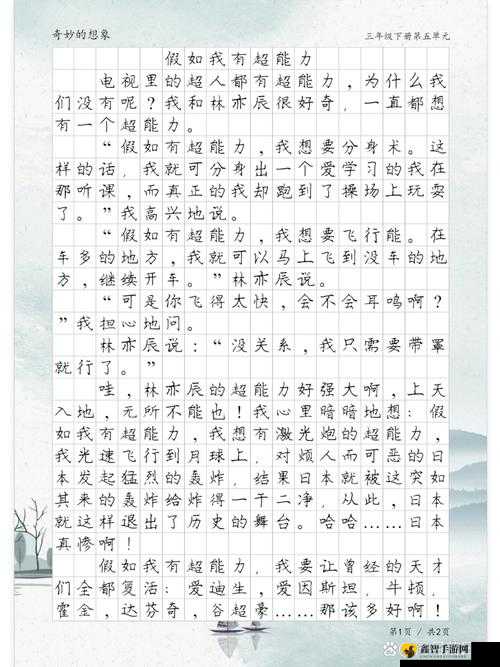 奇妙的想象
三年级下册第五单元
假如我有超能力
电视里的超人都有超能力，为什么我
们没有呢？我和林亦辰很好奇，一直都想
有一个超能力。
“假如有超能力，我想要分身术。这
样的话，我就可分身出一个爱学习的我在
那听课，而真正的我却跑到了操场上玩耍
了。”我高兴地说。
“假如有超能力，我想要飞行能。在
车多的地方，我就可以马上飞到没车的地
方，继续开车。”林亦辰说。
“可是你飞得太快，会不会耳鸣啊？
”我担心地问。
林亦辰说：“没关系，我只需要带罩
就行了。”
哇，林亦辰的超能力好强大啊，上天
入地，无所不能也！我心里暗暗地想：假
如我有超能力，我想有激光炮的超能力，
我光速飞行到月球上，对烦人而可恶的日
本发起猛烈的轰炸，结果日本就被这突如
其来的轰炸给炸得一干二净，从此，日本
就这样退出了历史的舞台。哈哈……日本
真惨啊！
假如我有超能力，我要让曾经的天才
们全都复活：爱迪生，爱因斯坦，牛顿，
霍金，达芬奇，谷超豪……那该多好啊！
第1页 / 共2页
鑫智手游网